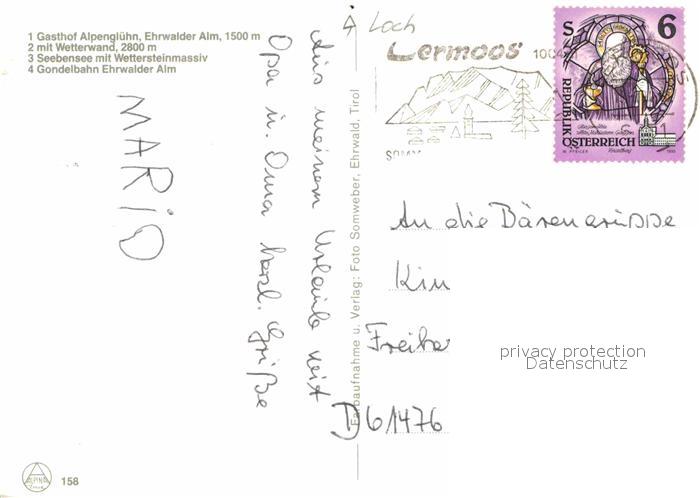 1 Gasthof Alpenglühn, Ehrwalder Alm, 1500 m
2 mit Wetterwand, 2800 m
3 Seebensee mit Wettersteinmassiv
4 Gondelbahn Ehrwalder Alm
Loch
Lermoos
S 6
REPUBLIK
ÖSTERREICH
Aus meinem Urlaub mit
Opa u. Oma herzl. Grüße
MARIO
Farbaufnahme u. Verlag: Foto Somweber, Ehrwald, Tirol
An die Bärengruppe
Kin
Freihe
D 61476
privacy protection
Datenschutz
ALPINA
158